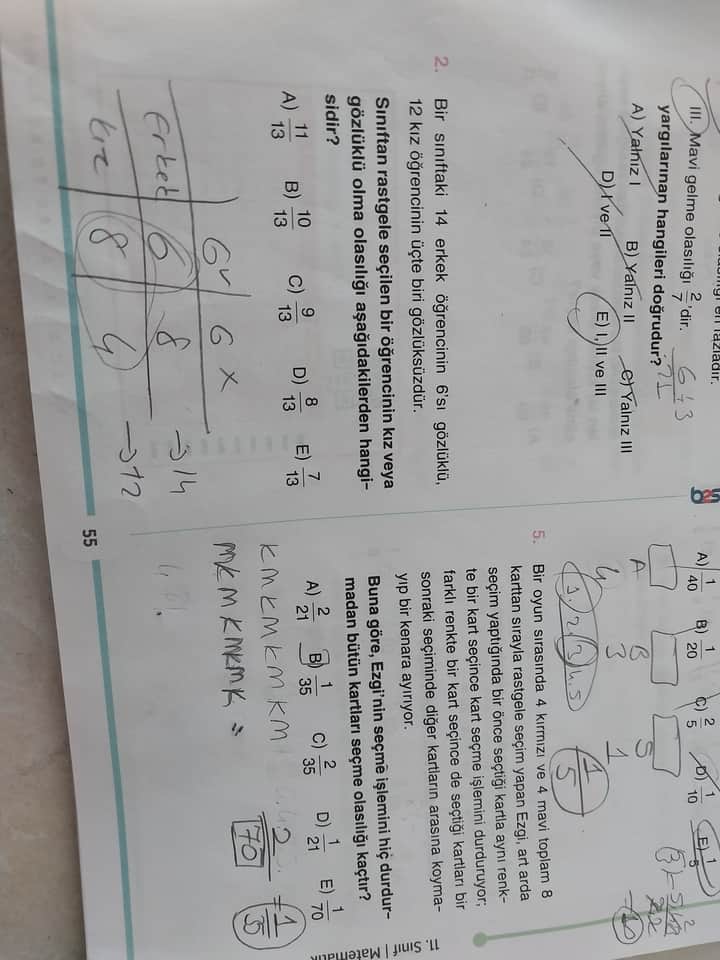 III. Mavi gelme olasılığı 2/7'dir.
yargılarınan hangileri doğrudur?
A) Yalnız I B) Yalnız II C) Yalnız III
D) I ve II E) I, II ve III
2. Bir sınıftaki 14 erkek öğrencinin 6'sı gözlüklü,
12 kız öğrencinin üçte biri gözlüksüzdür.
Sınıftan rastgele seçilen bir öğrencinin kız veya
gözlüklü olma olasılığı aşağıdakilerden hangi-
sidir?
A) 11/13 B) 10/13 C) 9/13 D) 8/13 E) 7/13
6 x
Erkek 6 8 → 14
kız 8 4 → 12
55
A) 1/40 B) 1/20 C) 2/5 D) 1/10 E) 1/5
A B S
4 3 1
1/5
5. Bir oyun sırasında 4 kırmızı ve 4 mavi toplam 8
karttan sırayla rastgele seçim yapan Ezgi, art arda
seçim yaptığında bir önce seçtiği kartla aynı renk-
te bir kart seçince kart seçme işlemini durduruyor;
farklı renkte bir kart seçince de seçtiği kartları bir
sonraki seçiminde diğer kartların arasına koyma-
yıp bir kenara ayırıyor.
Buna göre, Ezgi'nin seçme işlemini hiç durdur-
madan bütün kartları seçme olasılığı kaçtır?
A) 2/21 B) 1/35 C) 2/35 D) 1/21 E) 1/70
KMKMKMKM
MKMKMKMK =
2/70 = 1/35
11. Sınıf | Matematik